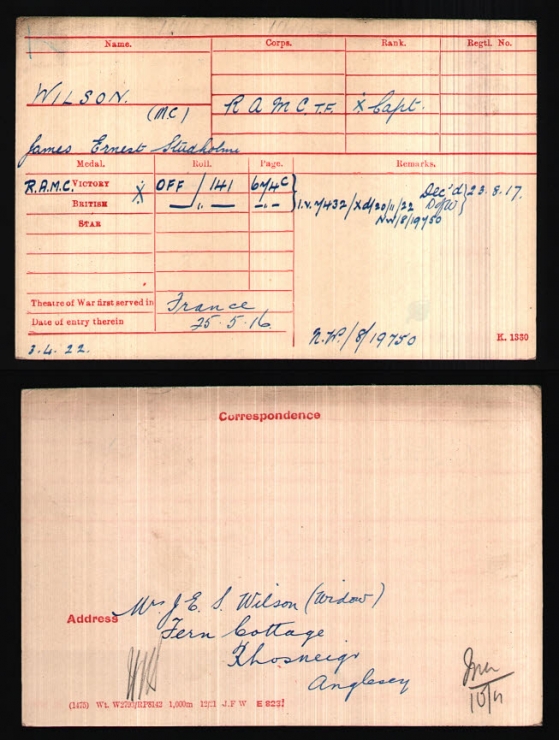 Name. Corps. Rank. Regtl. No.
WILSON.
(MC) R A M C T.F. X Capt.
James Ernest Studholme
Medal. Roll. Page. Remarks.
R.A.M.C. VICTORY X OFF / 141
BRITISH — " — — " —
I.V. 7/432 / Xd/20/11/22 Dec'd 23.8.17.
DofW
NW/8/19750
STAR
Theatre of War first served in France
Date of entry therein 25.5.16
3.4.22. N.W./8/19750 K. 1380
Correspondence
Address Mrs J E. S. Wilson (Widow)
Fern Cottage
Rhosneigr
Anglesey
10/11
J.F W E 823!